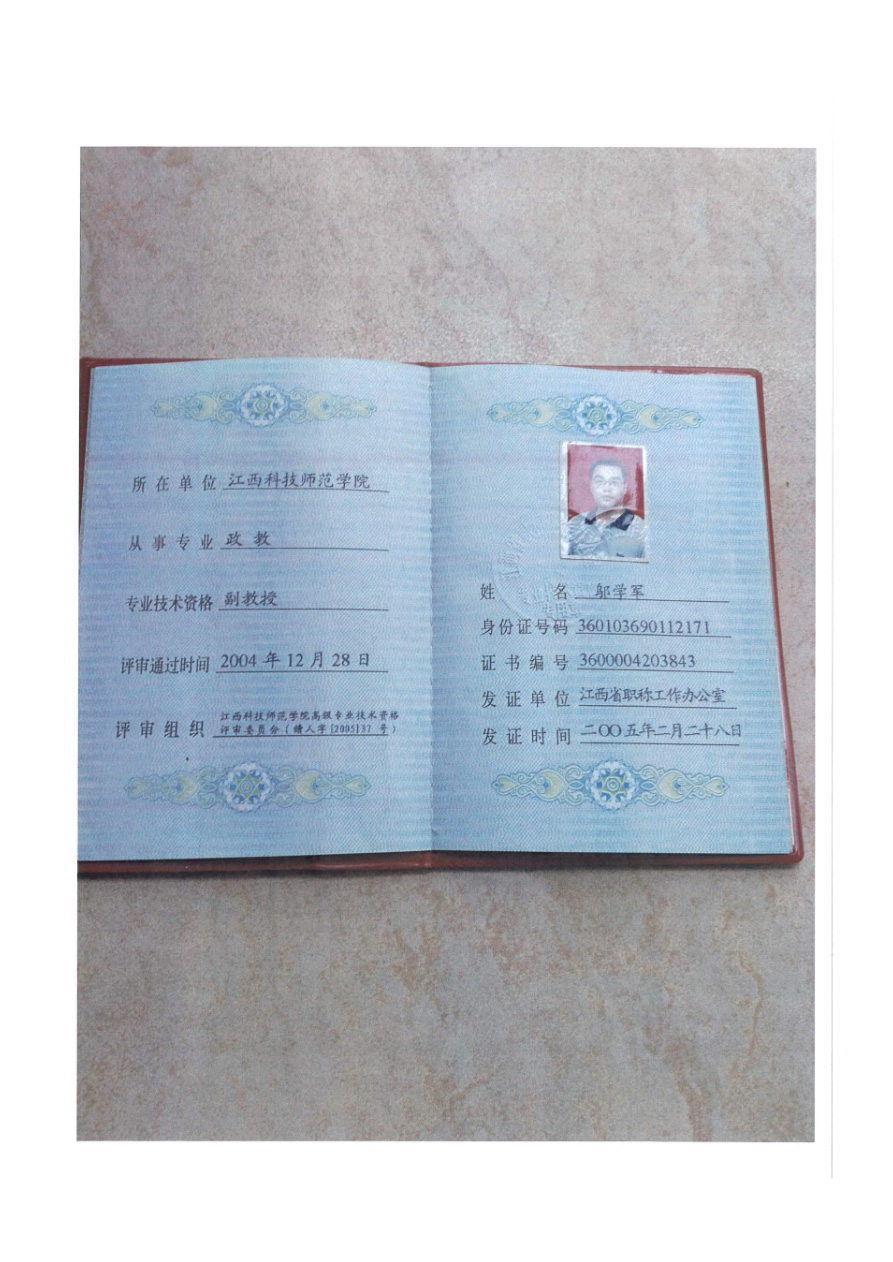 所在单位 江西科技师范学院
从事专业 政教
专业技术资格 副教授
评审通过时间 2004年12月28日
评审组织 江西科技师范学院高级专业技术资格
评审委员会(赣人字[2005]37号)
姓名 邬学军
身份证号码 360103690112171
证书编号 3600004203843
发证单位 江西省职称工作办公室
发证时间 二〇〇五年二月二十八日